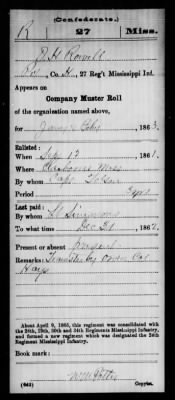 (Confederate.)
R 27 Miss.
Co. H, 27 Reg't Mississippi Inf.
Appears on
Company Muster Roll
of the organization named above,
for 1863.
Enlisted:
When Sep 13 1861.
Where
By whom Capt.
Period 3 yrs
Last paid:
By whom Simmons
To what time Dec 31, 1862.
Present or absent Present
Remarks: Transfer by order Col
Hays
About April 9, 1865, this regiment was consolidated with
the 24th, 29th, 30th and 34th Regiments Mississippi Infantry,
and formed a new regiment which was designated the 24th
Regiment Mississippi Infantry.
Book mark:
(642) Copyist.